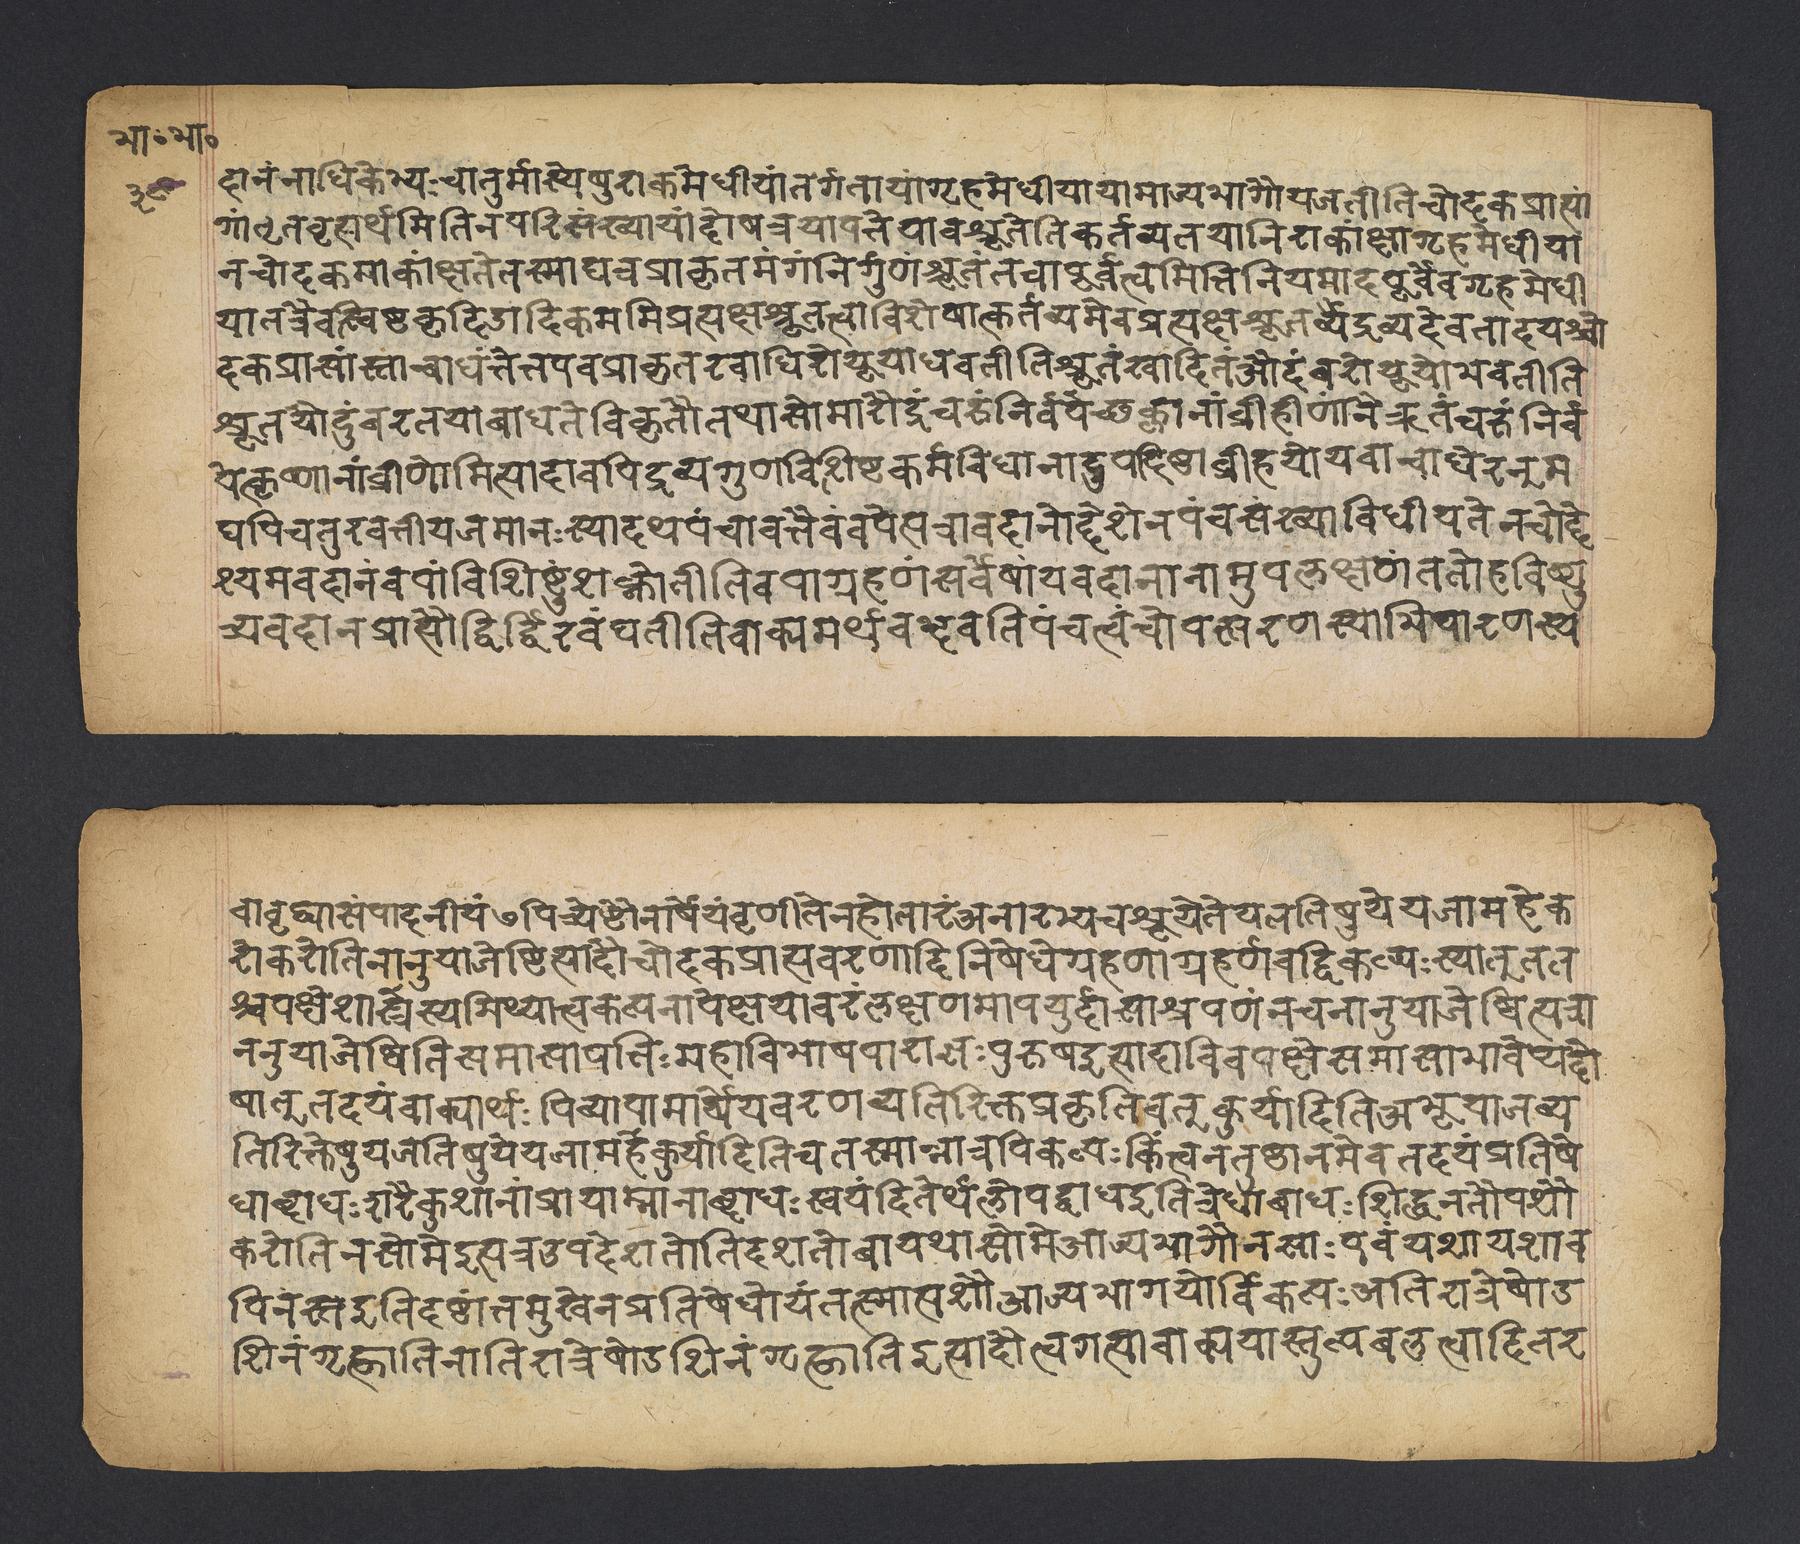 भा॰भा॰
हानंनाधिकेभ्यःचातुर्मास्येषुराकमेधीयांतर्गतायांगृहमेधीयायामाज्यभागौयजतीतिचोदकप्राप्तां
गांनृतवृह्यर्थमितिनपरिसंख्यायांदोषत्रयापत्तेयावश्रूतेतिकर्तव्यतयानिराकांक्षागृहमेधीया
नचोदकमाकांक्षतेतस्माद्यवप्राकृतमंगंनिर्गुणंश्रूतंतचापूर्वत्वमितिनियमादपूर्वैवगृहमेधी
यातत्रैवस्विष्टकृदिडादिकममिप्रत्यक्षश्रूतत्वाविशेषात्कर्तव्यमेवप्रत्यक्षश्रूतर्थ्यैद्रव्यदेवतादयश्चो
दकप्राप्तांस्तान्बाधंतेतत्तएवप्राकृतरवाधिरोयूयोधवतीतिश्रूतंखादितंऔदुंबरोयूयोभवतीति
श्रूतयौदुंबरतयाबाधतेविकृतौतथासोमारौद्रंचरुंनिर्वपेच्छुक्लानांव्रीहीणांनैऋतंचरुंनिर्व
पेत्कृष्णानांव्रीणामित्यादावपिद्रव्यगुणविशिष्टकर्मविधानादुपदिष्टाव्रीहयोयवान्बाधेरन्नम
द्यपिचतुरवत्तीयजमानःस्यादथपंचावत्तैवंवपेत्यत्रावदानोद्देशेनपंचसंख्याविधीयतेनचोद्दे
श्यमवदानंवपांविशिष्टुंशक्नोतीतिवपाग्रहणंसर्वेषांयवदानानामुपलक्षणंततोहविष्षु
त्र्यवदानप्राप्तौद्विर्द्विरवंद्यतीतिवाक्यमर्थवद्भवतिपंचत्वंचोपस्तरणस्याभिघारणस्य
चावृद्ध्यासंपादनीयं७पित्र्येष्टौनार्षेयंवृणीतेनहोतारंअनारभ्यचश्रूयेतेयजतिषुयेयजामहेक
रोकरोतिनानुयाजेष्टित्यादौचोदकप्राप्तवरणादिनिषेधेग्रहणाग्रहणवद्विकल्पःस्यात्नतत
श्चपक्षेशास्त्रस्यमिथ्यात्वकल्पनापेक्षयावरंलक्षणमापयुर्दासाश्रयणंनचनानुयाजेष्वित्यत्रा
ननुयाजेष्वितिसमासापत्तिःमहाविभाषपाराज्ञःपुरुषइत्यादाविवपक्षेसमासाभावेप्यदो
षात्नतदयंवाक्यार्थःपित्र्यायामार्षेयवरणव्यतिरिक्तप्रकृतिवत्कुर्यादितिअभूयाजव्य
तिरिक्तेषुयजतिषुयेयजामहंकुर्यादितिचतस्मान्नात्रविकल्पःकिंत्वननुष्ठानमेवतदयंप्रतिषे
धाद्बाधःशरैकुशानांप्रायाम्नानाद्बाधःस्वयंदितेर्थलोपद्बाधइतित्रेधाबाधःशिद्धनतौपशौ
करोतिनसोमेइत्यत्रउपदेशतोतिदेशतोबायथासोमेआज्यभागौनस्तःएवंयशायशाव
पिनंस्तइतिदृष्टांतमुखेनप्रतिषेधोयंतस्मात्पशौआज्यभागयोर्विकल्पःअतिरात्रेषोड
शिनंगृह्णातिनातिरात्रेषोडशिनंगृह्णातिइत्यादौत्वगत्यावाक्ययास्तुल्यबलत्वादितर